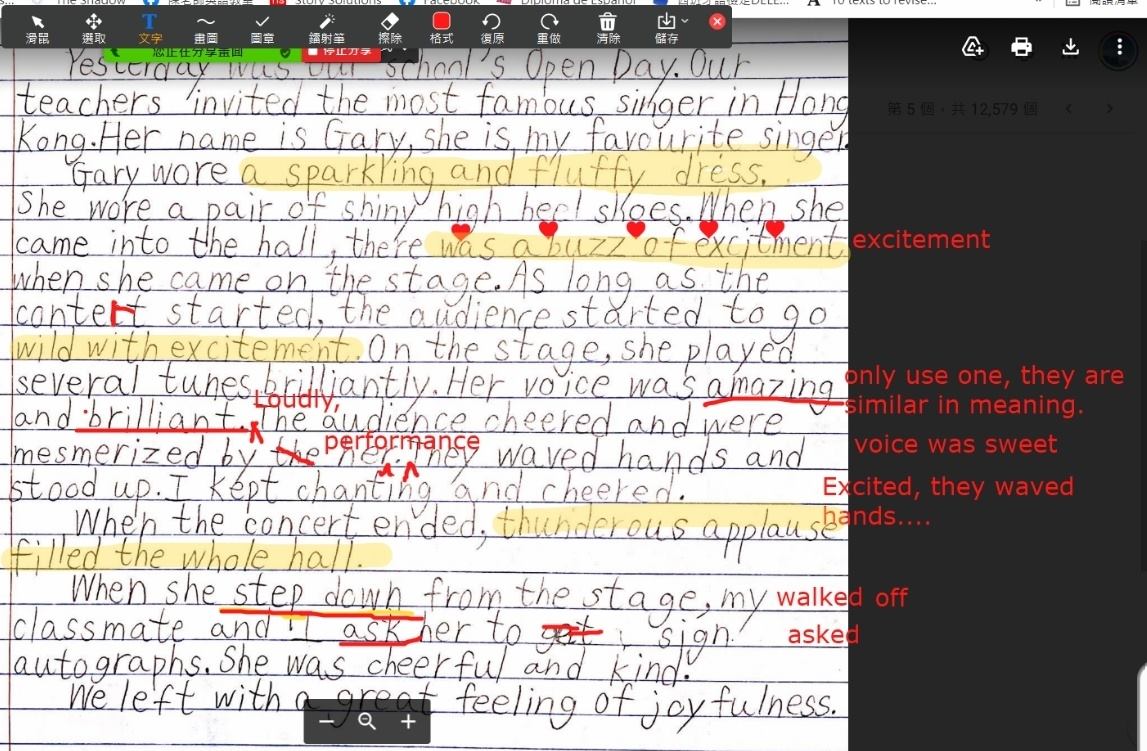 The Shadow Story Solutions Facebook Diploma de Español 10 texts to revise...
滑鼠 選取 文字 畫圖 圖章 鐳射筆 擦除 格式 復原 重做 清除 儲存
您正在分享畫面 停止分享
第 5 個，共 12,579 個
Yesterday was our school's Open Day. Our
teachers invited the most famous singer in Hong
Kong. Her name is Gary, she is my favourite singer.
Gary wore a sparkling and fluffy dress.
She wore a pair of shiny high heel shoes. When she
came into the hall, there was a buzz of excitment, excitement
when she came on the stage. As long as the
started, the audience started to go
wild with excitement. On the stage, she played
several tunes brilliantly. Her voice was amazing only use one, they are
similar in meaning.
Loudly,
and brilliant. The audience cheered and were
performance voice was sweet
mesmerized by the her. They waved hands and
stood up. I kept chanting and cheered. Excited, they waved
hands....
When the concert ended, thunderous applause
filled the whole hall.
When she step down from the stage, my walked off
classmate and I ask her to get sign asked
autographs. She was cheerful and kind.
We left with a great feeling of joyfulness.